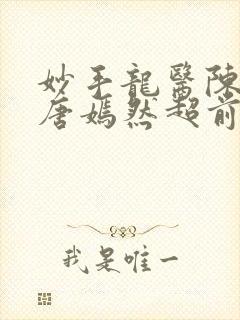 妙手龍醫陳
唐嫣然超前
我是唯一